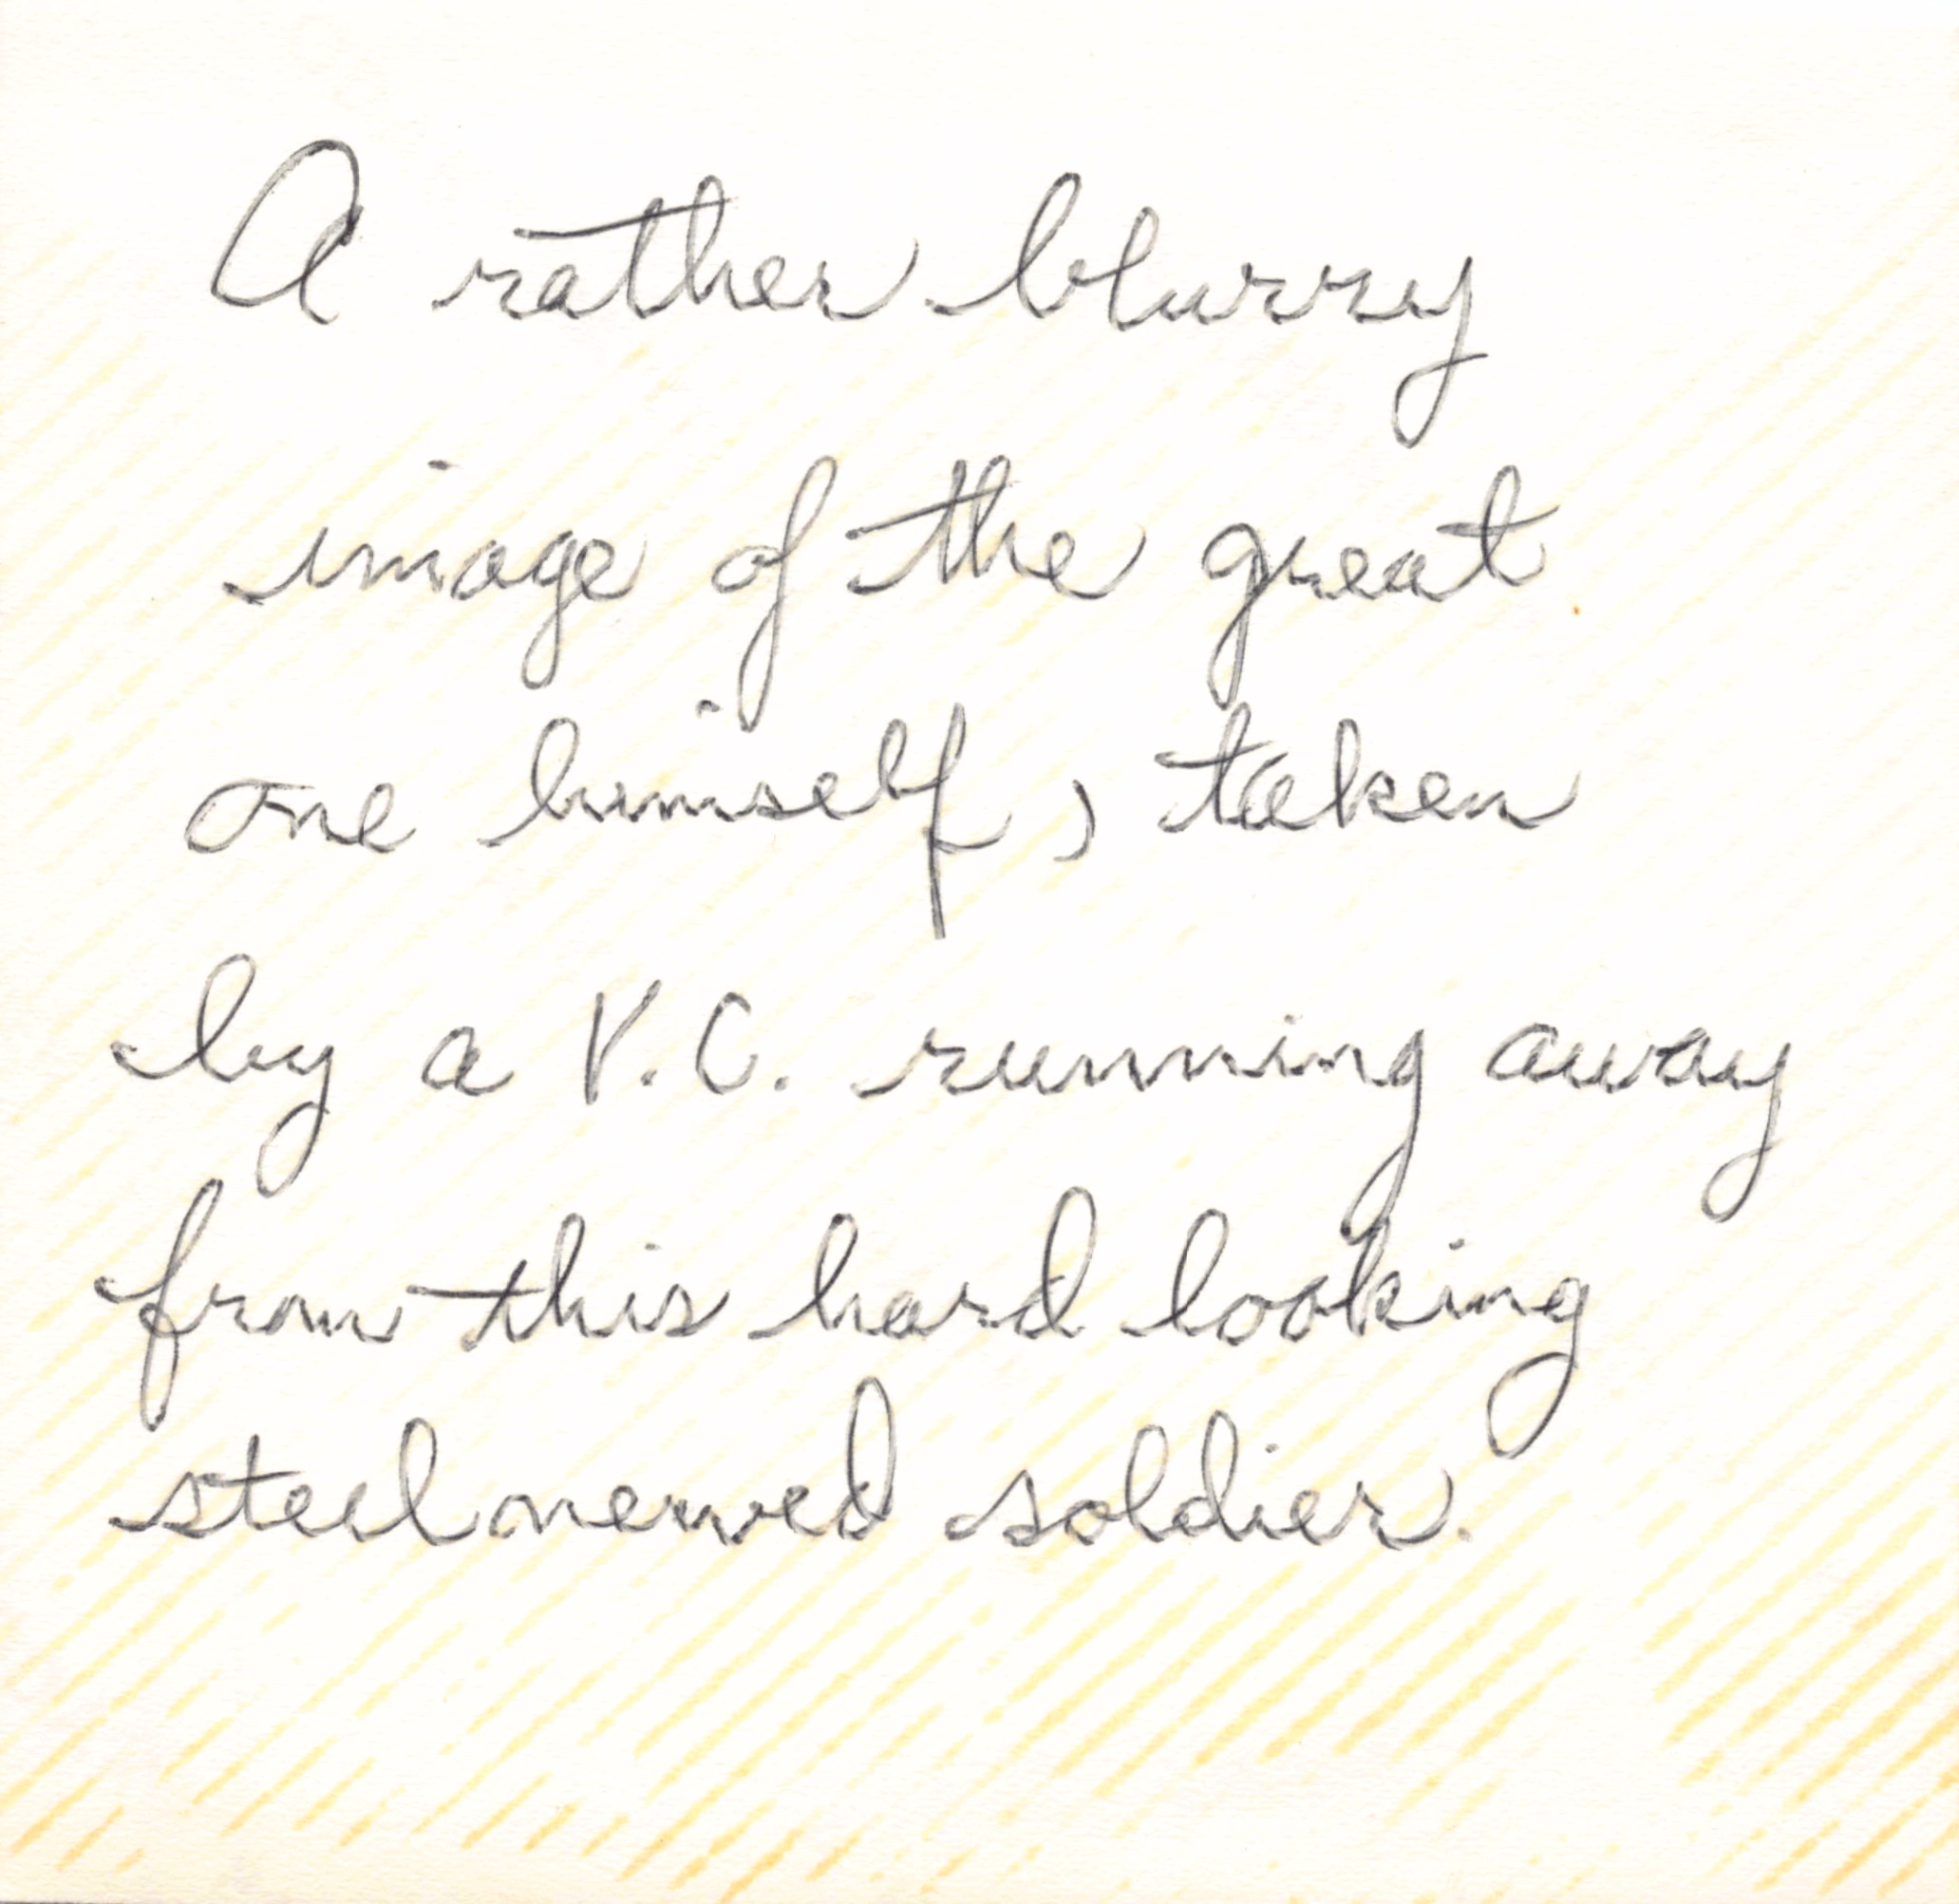 A rather blurry
image of the great
one himself, taken
by a V.C. running away
from this hard looking
steel nerved soldier.